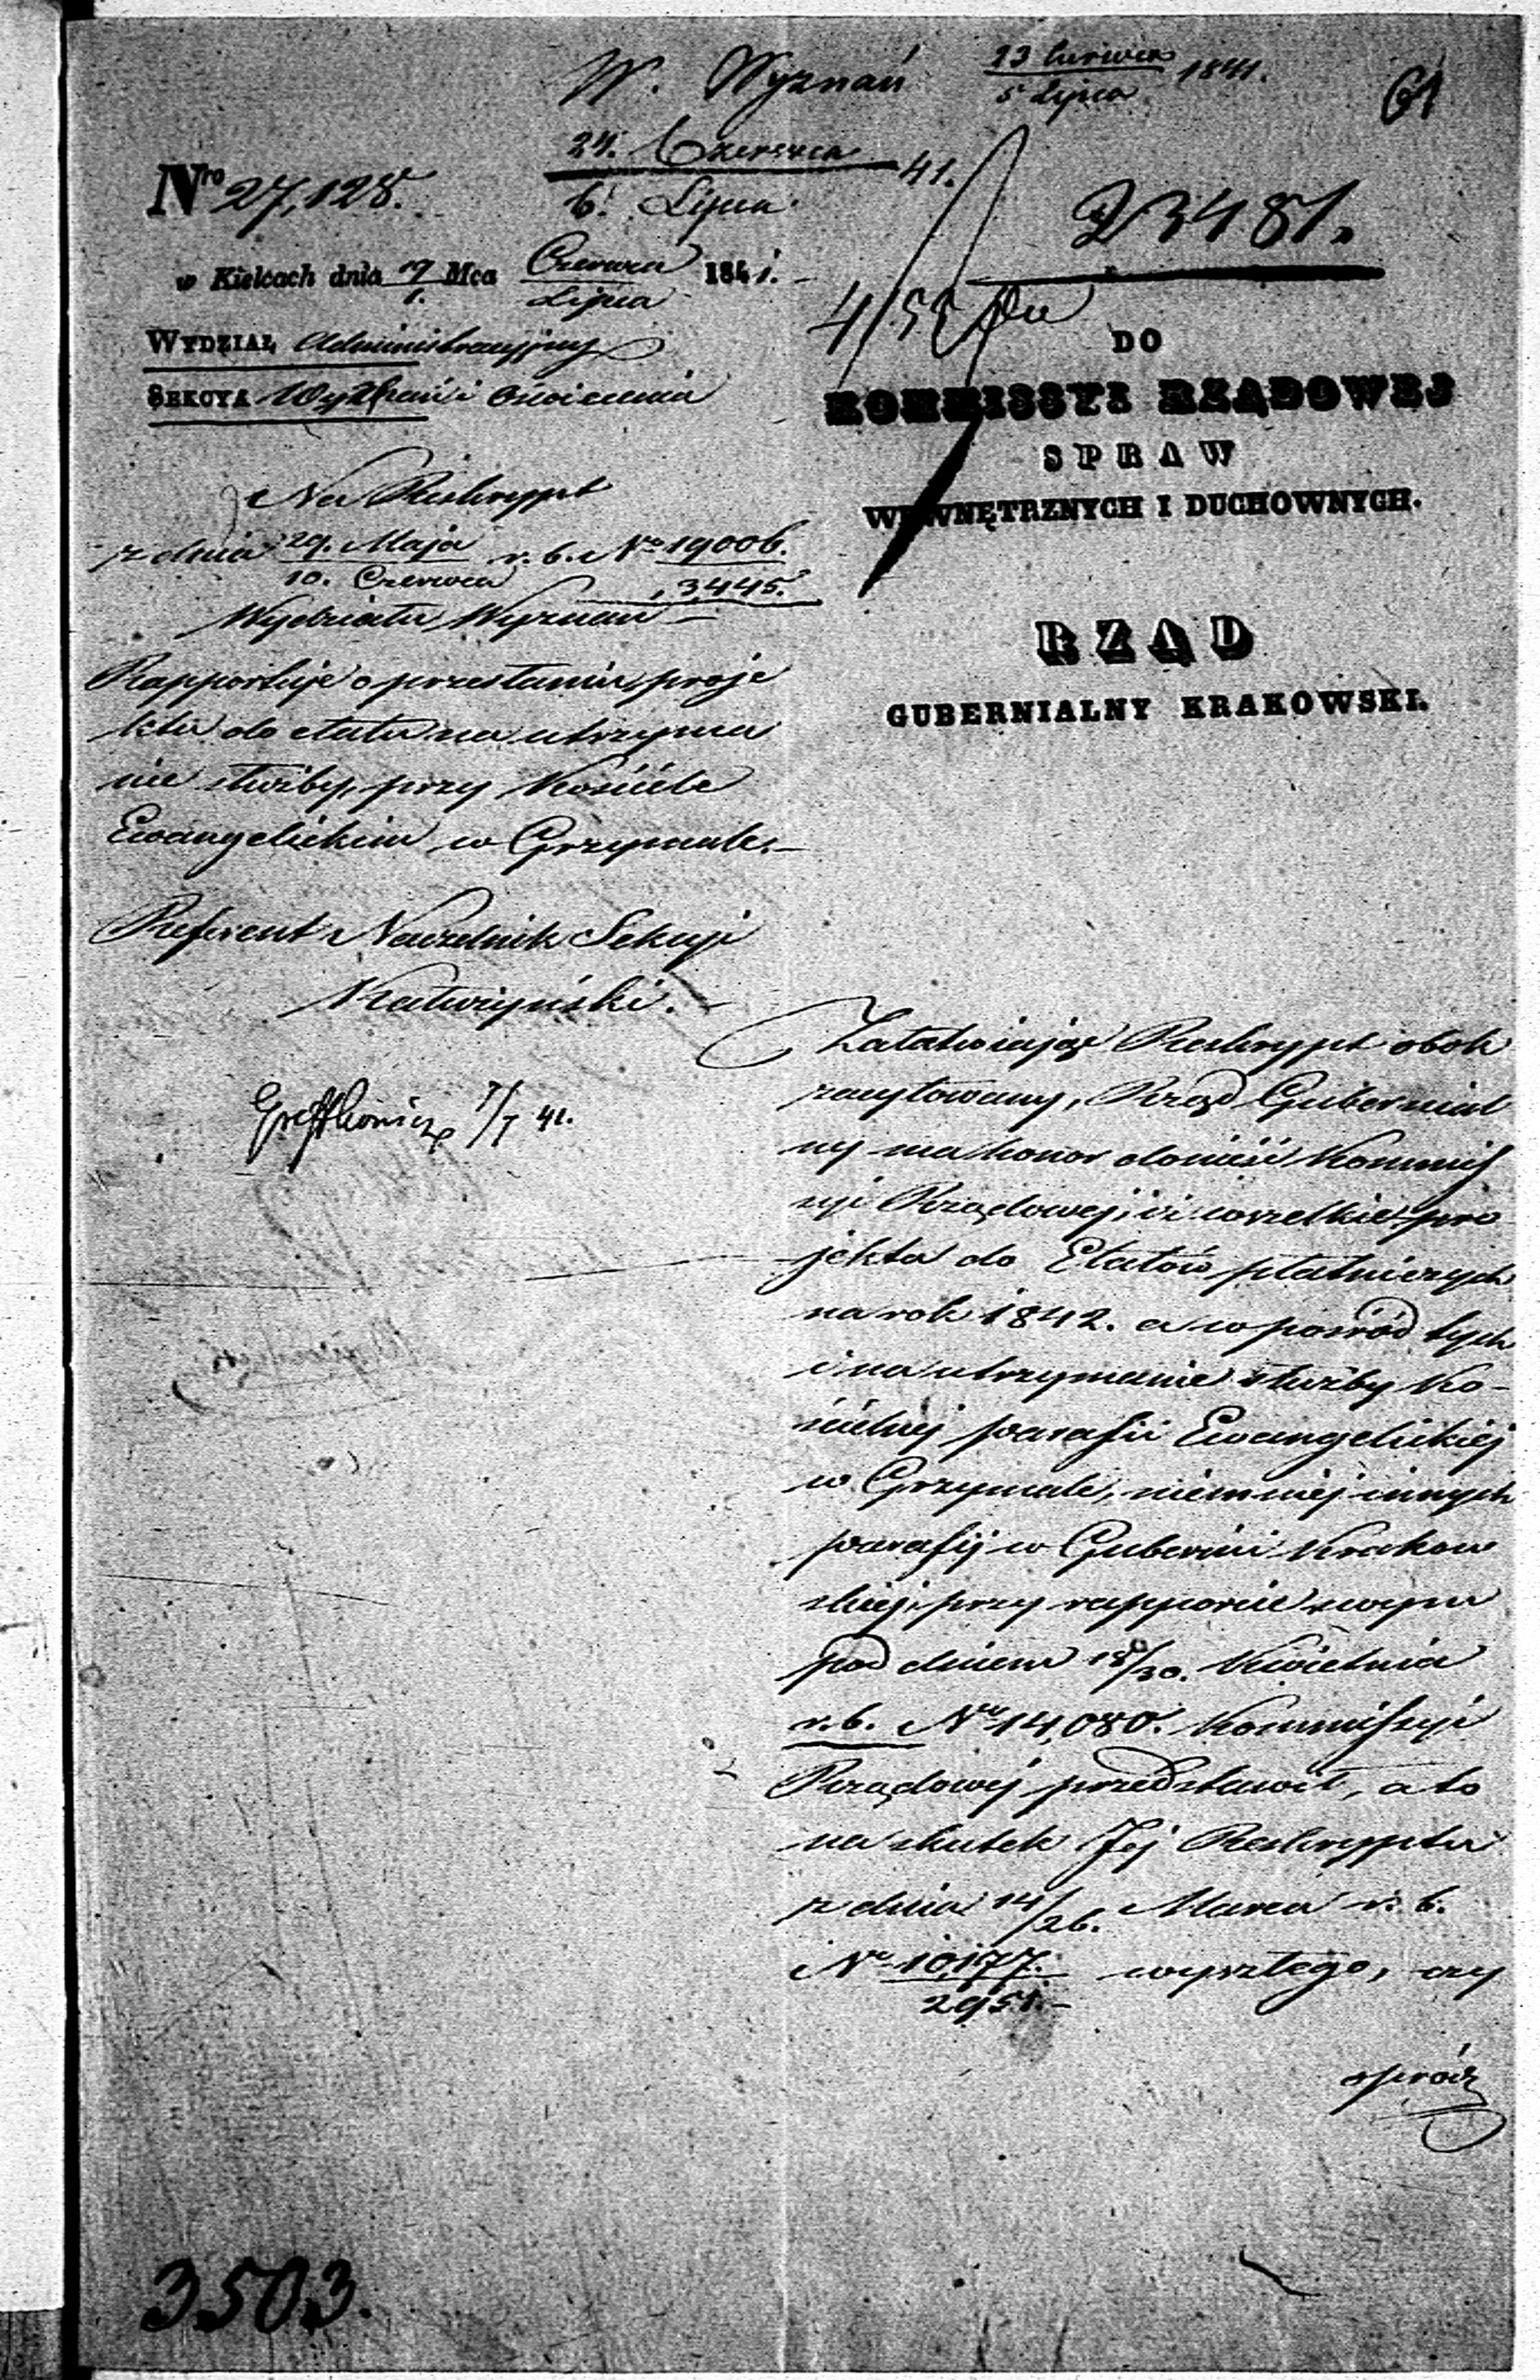 W. Wyznań 23 Czerwca / 5 Lipca 1841.
61
24. Czerwca / 6. Lipca 41.
Nro 27,128.
23481.
w Kielcach dnia 19/1. Mca Czerwca/Lipca 1841.
WYDZIAŁ Administracyjny
SEKCYA Wyznań i Oświecenia
Na Reskrypt
z dnia 29. Maja / 10. Czerwca r. b. No 19006. / 3445.
Wydziału Wyznań
Rapportuje o przesłaniu proje
ktu do etatu na utrzyma
nie służby przy Kościele
Ewangelickim w Grzymale.
Referent Naczelnik Sekcyi
7/7 41.
3503.
DO
KOMMISSYI RZĄDOWEJ
SPRAW
WEWNĘTRZNYCH I DUCHOWNYCH.
RZĄD
GUBERNIALNY KRAKOWSKI.
Załatwiając Reskrypt obok
zacytowany, Rząd Gubernial
ny ma honor donieść Kommis
syi Rządowej, iż wszelkie pro
jekta do Etatów płatniczych
na rok 1842. a wpośród tych
i na utrzymanie służby Ko-
ścielnej parafii Ewangelickiej
w Grzymale, niemniej innych
parafij w Gubernii Krakow
skiej, przy rapporcie swym
pod dniem 18/30. Kwietnia
r. b. No 14,080. Kommissyi
Rządowej przedstawił, a to
na skutek Jej Reskryptu
z dnia 14/26. Marca r. b.
No 10177. / 2951. wyszłego, czy
oprócz